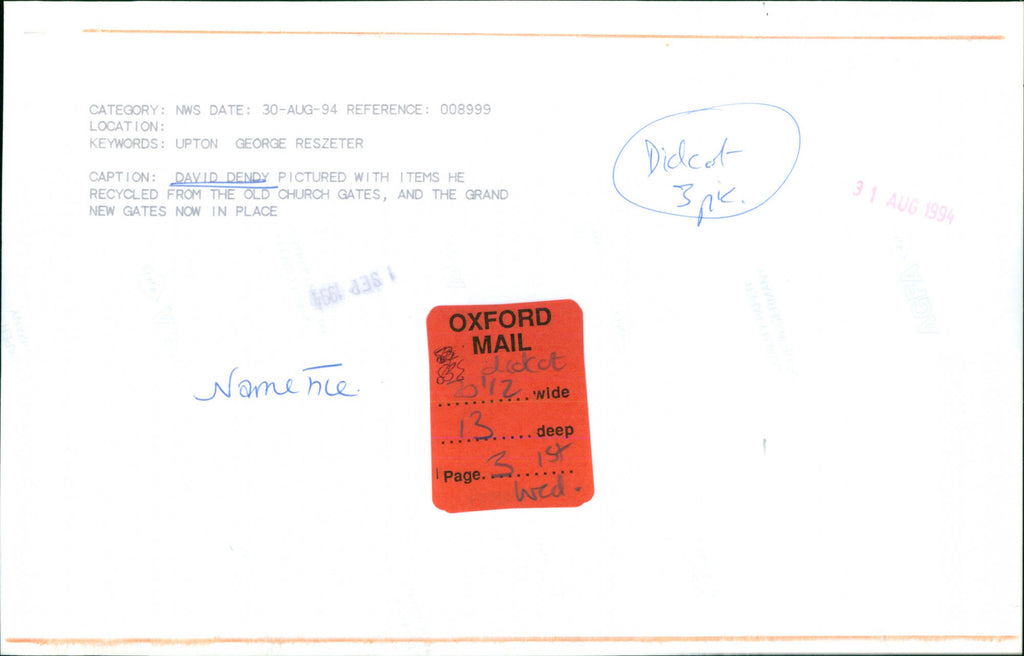 CATEGORY: NWS DATE: 30-AUG-94 REFERENCE: 008999
LOCATION:
KEYWORDS: UPTON GEORGE RESZETER
CAPTION: DAVID DENDY PICTURED WITH ITEMS HE
RECYCLED FROM THE OLD CHURCH GATES, AND THE GRAND
NEW GATES NOW IN PLACE
Didcot
3 pic.
31 AUG 1994
1 SEP 1994
Name File
OXFORD
MAIL
didcot
wide
13 deep
Page. 3 1st
Wed.